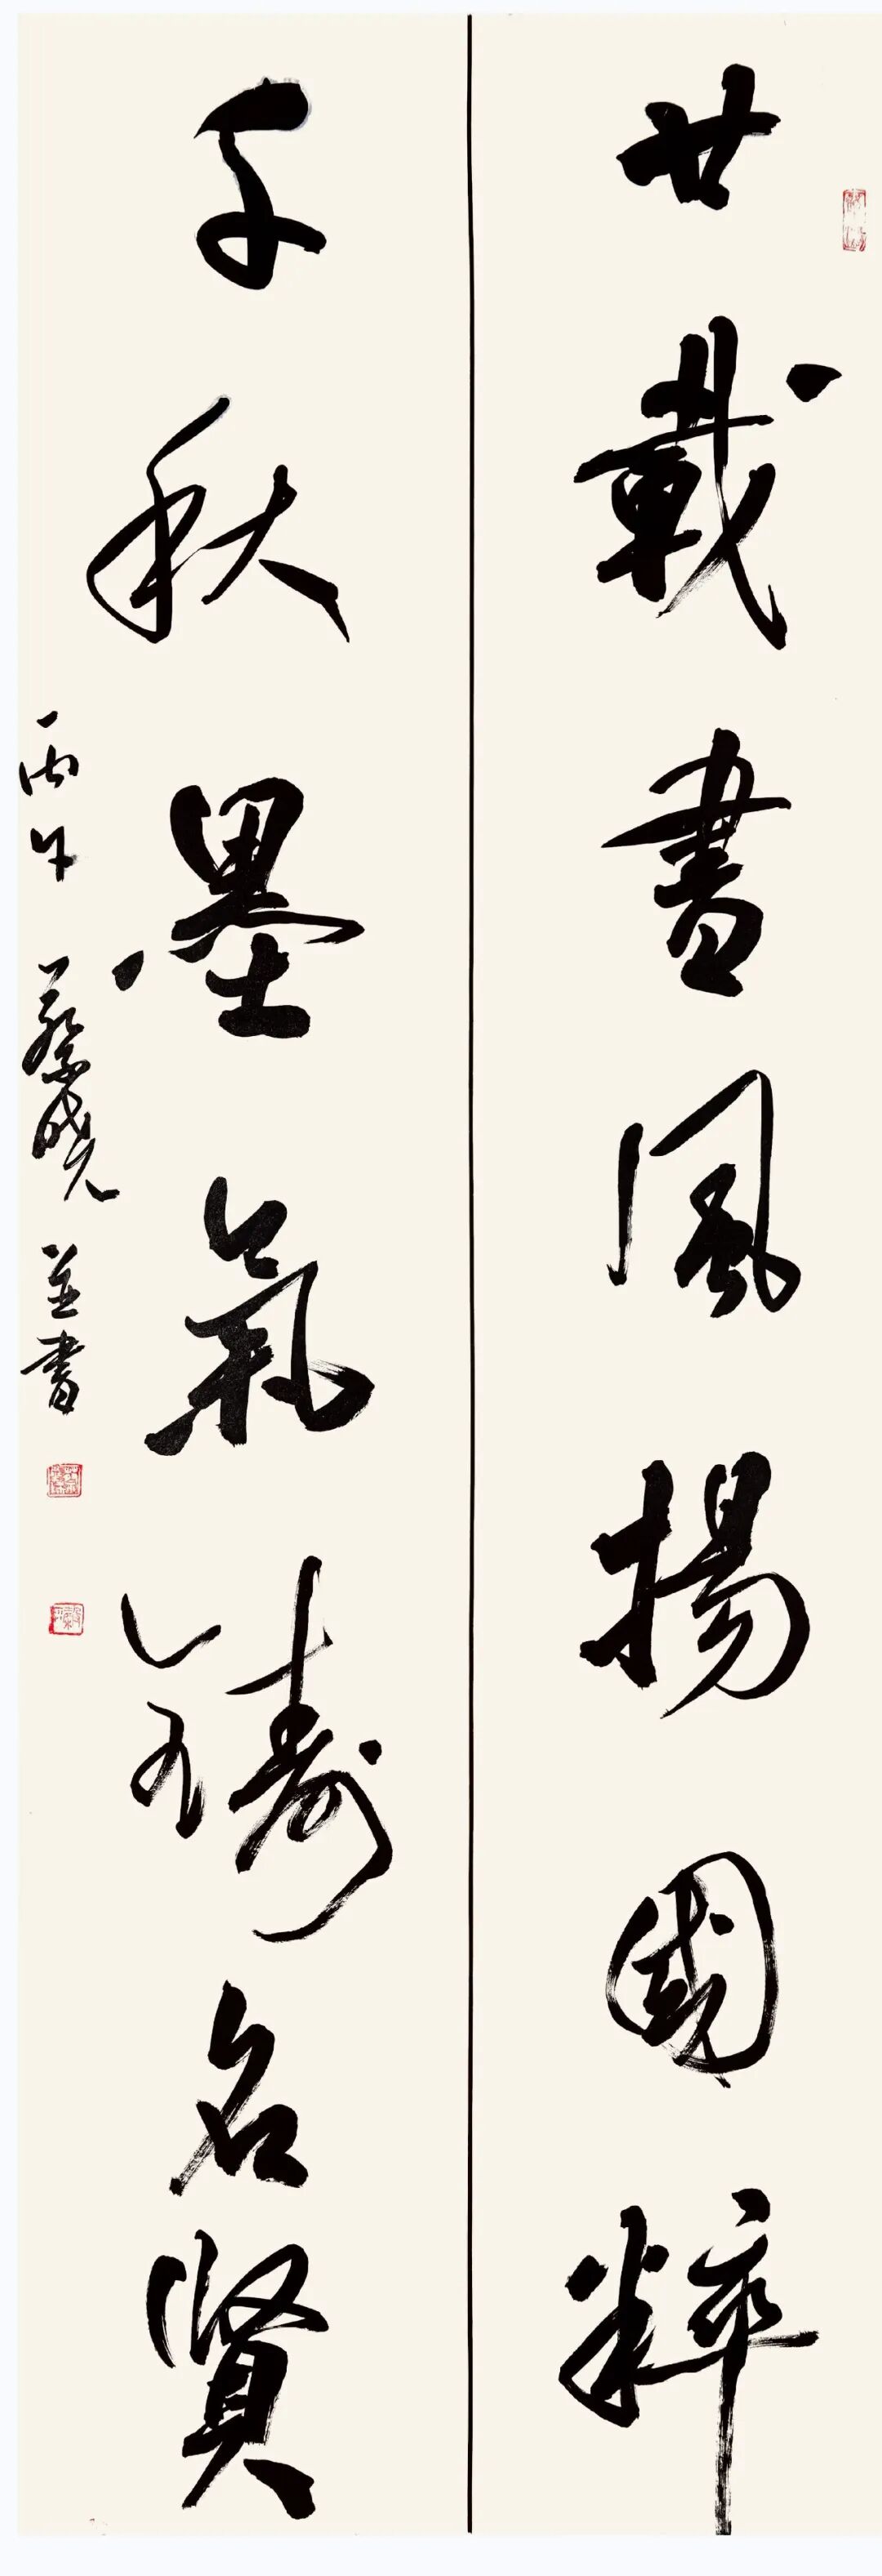 廿載書風揚國粹
千秋墨氣鑄名賢
丙午 蔡曉 並書